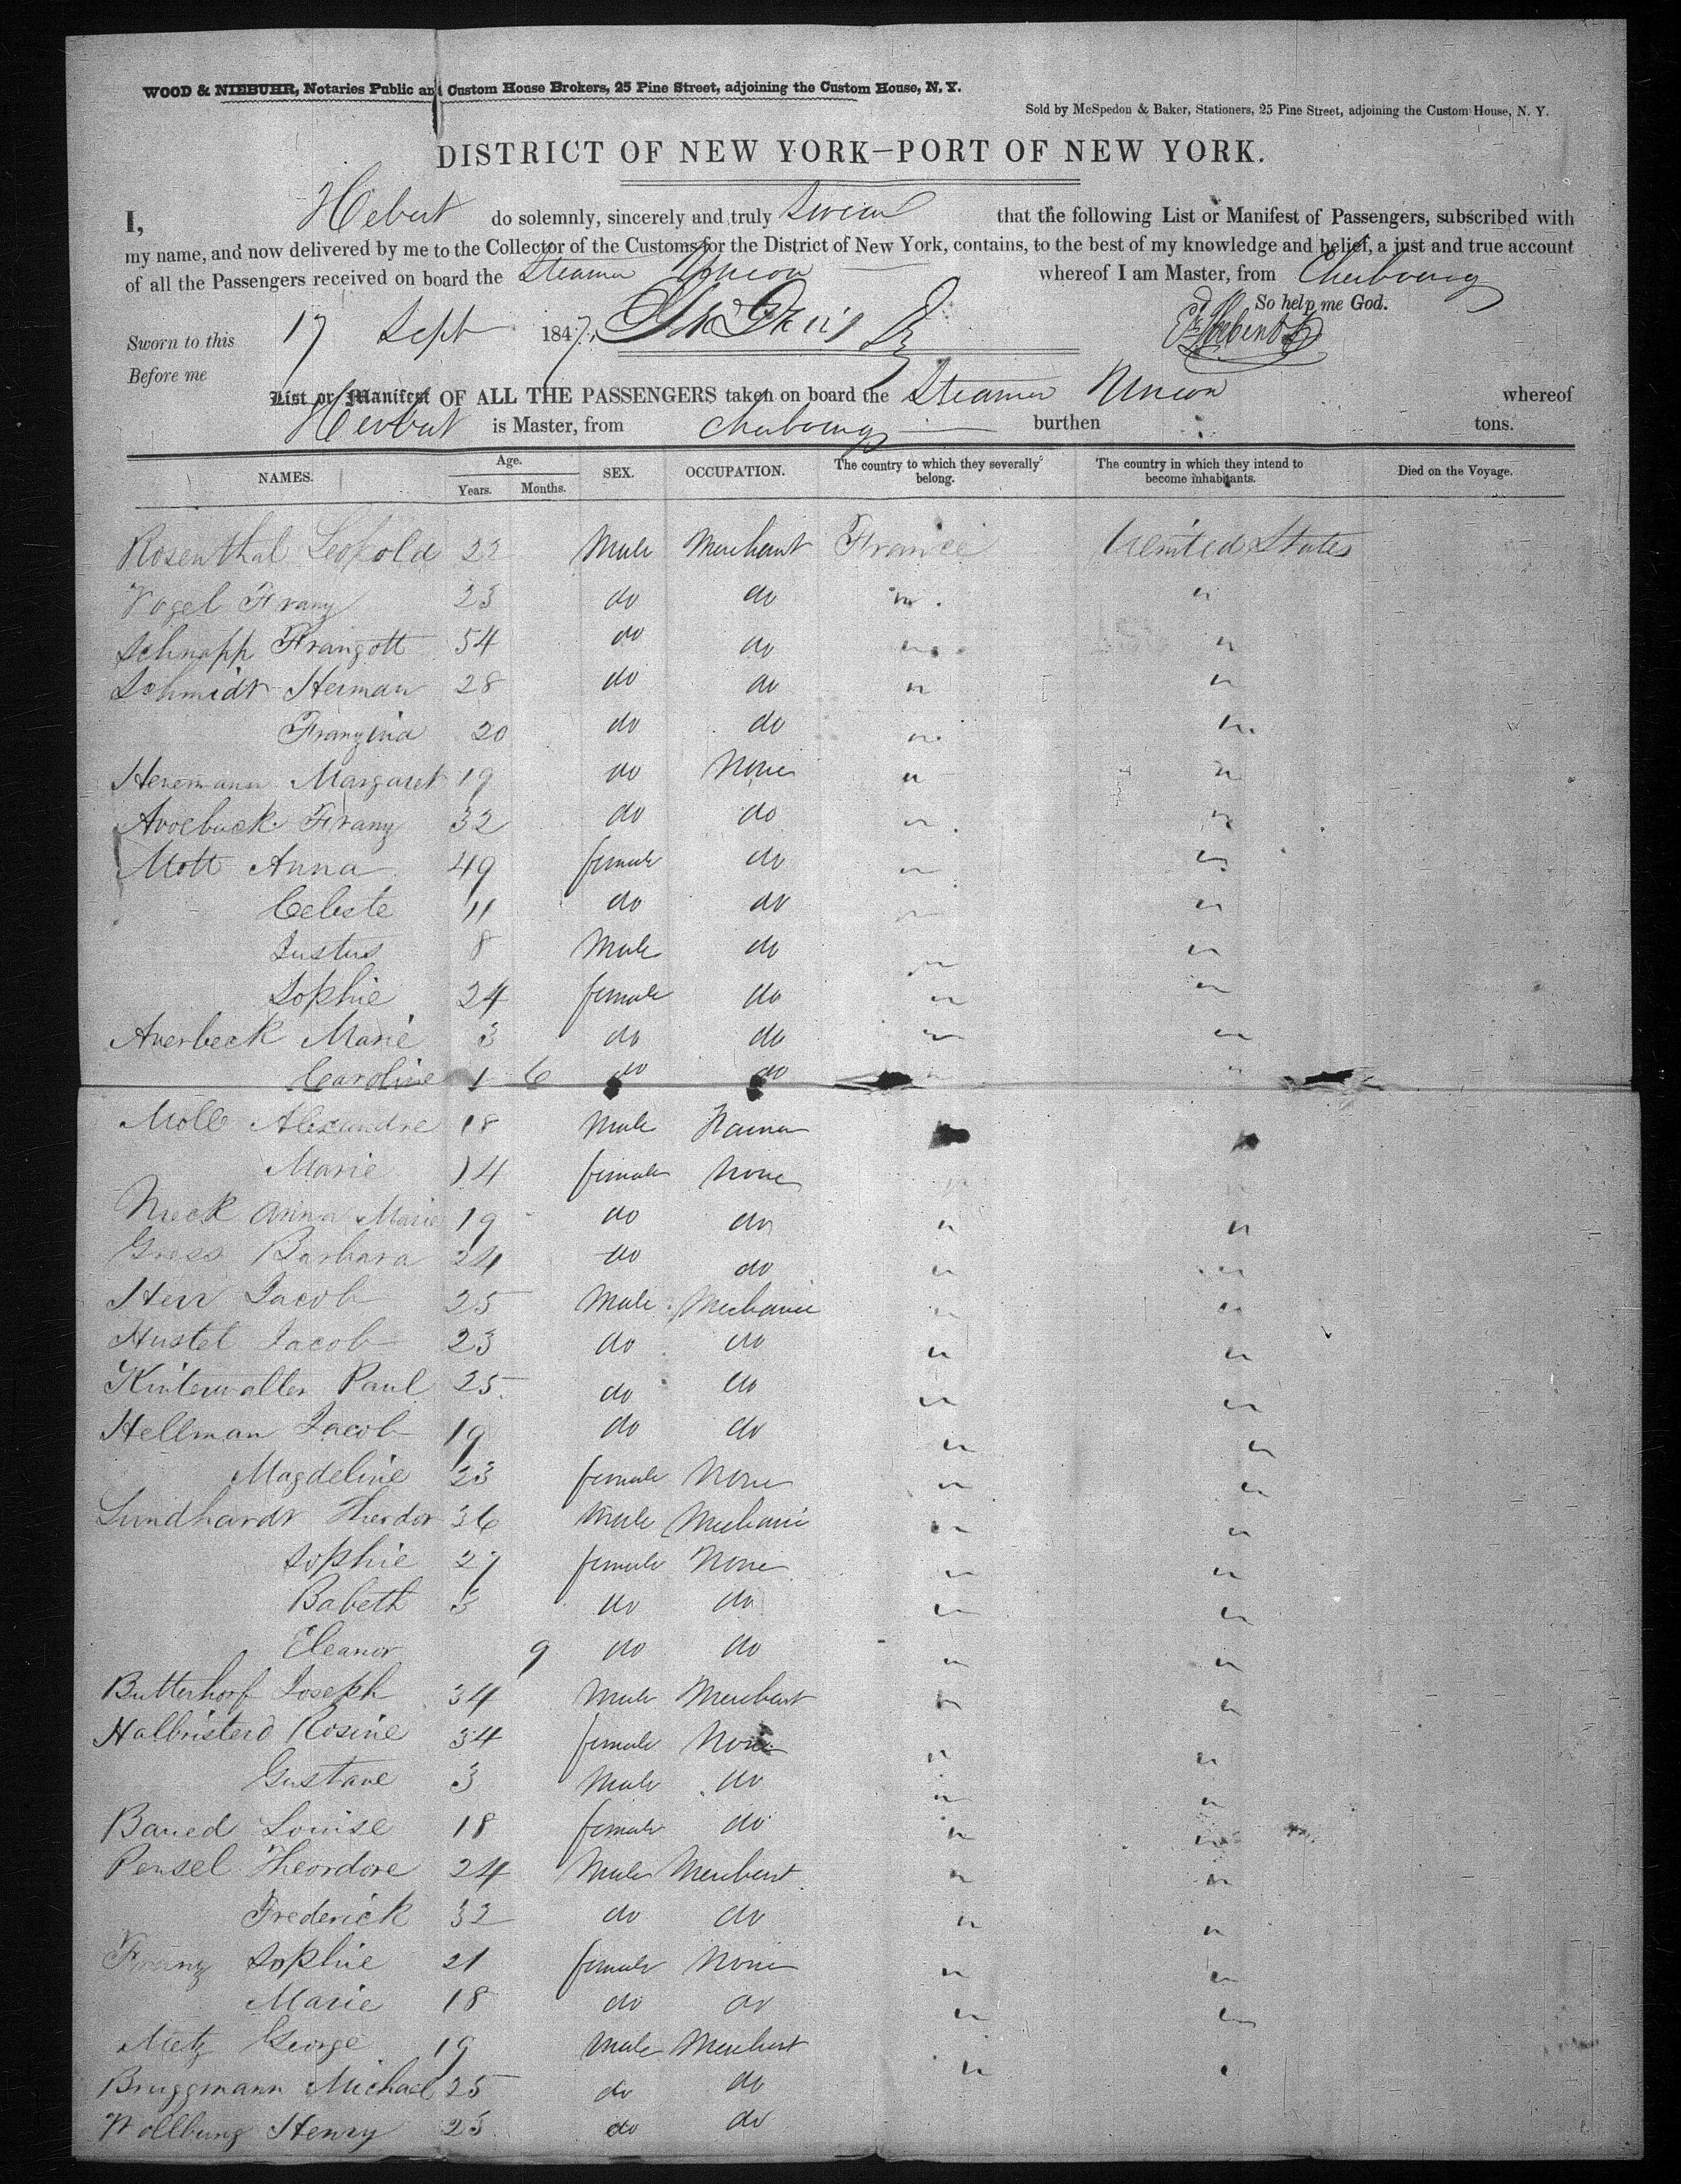 WOOD & NIEBUHR, Notaries Public and Custom House Brokers, 25 Pine Street, adjoining the Custom House, N. Y.
Sold by McSpedon & Baker, Stationers, 25 Pine Street, adjoining the Custom House, N. Y.
DISTRICT OF NEW YORK—PORT OF NEW YORK.
I, Hebert do solemnly, sincerely and truly Swear that the following List or Manifest of Passengers, subscribed with
my name, and now delivered by me to the Collector of the Customs for the District of New York, contains, to the best of my knowledge and belief, a just and true account
of all the Passengers received on board the Steamer Union whereof I am Master, from Cherbourg
So help me God.
Sworn to this 17 Sept 1847
Before me
List or Manifest OF ALL THE PASSENGERS taken on board the Steamer Union whereof
Herbert is Master, from Cherbourg burthen tons.
NAMES. Age. Years. Months. SEX. OCCUPATION. The country to which they severally belong. The country in which they intend to become inhabitants. Died on the Voyage.
Rosenthal Leopold 22 Male Merchant France United States
Vogel Franz 23 do do " "
Schnapp Frangott 54 do do " "
Schmidt Herman 28 do do " "
Franzina 20 do do " "
Heremann Margaret 19 do None " "
Avoeback Franz 32 do do " "
Mott Anna 49 female do " "
Celeste 11 do do " "
Justus 8 Male do " "
Sophie 24 female do " "
Averbeck Marie 3 do do " "
Caroline 1 6 do do " "
Moll Alexandre 18 Male Farmer
Marie 14 female None " "
Nieck Anna Marie 19 do do " "
Gress Barbara 24 do do " "
Herr Jacob 25 Male Mechanic " "
Hustel Jacob 23 do do " "
Kinterwalter Paul 25 do do " "
Hellman Jacob 19 do do " "
Magdeline 23 female None " "
Lundhardt Therdor 36 Male Mechanic " "
Sophie 27 female None " "
Babeth 3 do do " "
Eleanor 9 do do " "
Butterhorf Joseph 34 Male Merchant " "
Halbristerd Rosine 34 female None " "
Gustave 3 Male do " "
Baried Louise 18 female do " "
Pensel Theordore 24 Male Merchant " "
Frederick 32 do do " "
Franz Sophie 21 female None " "
Marie 18 do do " "
Metz George 19 Male Merchant " "
Bruggmann Michael 25 do do
Wollbung Henry 23 do do